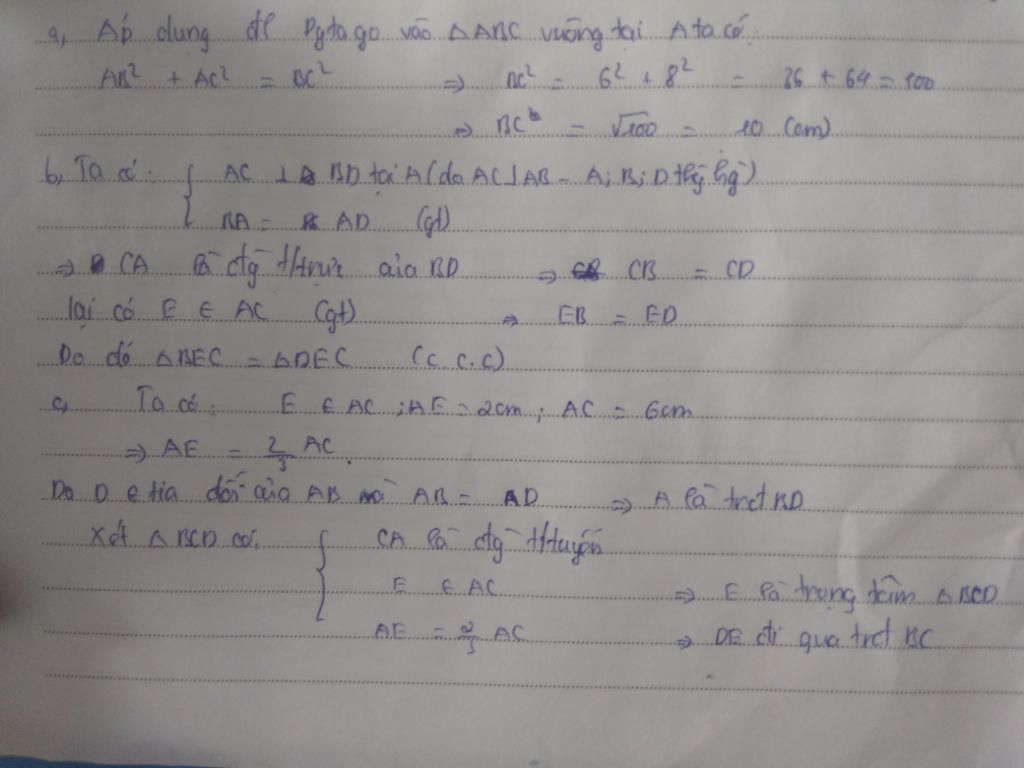 a, Áp dụng đl Pytago vào △ABC vuông tại A ta có:
AB² + AC² = BC² ⇒ BC² = 6² + 8² = 36 + 64 = 100
⇒ BC = √100 = 10 (cm)
b, Ta có: { AC ⊥ BD tại A (do AC ⊥ AB - A; B; D thg hg)
BA = AD (gt)
⇒ CA là đg trực của BD ⇒ CB = CD
lại có E ∈ AC (gt) ⇒ EB = ED
Do đó △BEC = △DEC (c.c.c)
c, Ta có: E ∈ AC ; AE = 2cm ; AC = 6cm
⇒ AE = 2/3 AC.
Do D ∈ tia đối của AB mà AB = AD ⇒ A là trđ BD
Xét △BCD có: { CA là đg tuyến
E ∈ AC ⇒ E là trọng tâm △BCD
AE = 2/3 AC ⇒ DE đi qua trđ BC